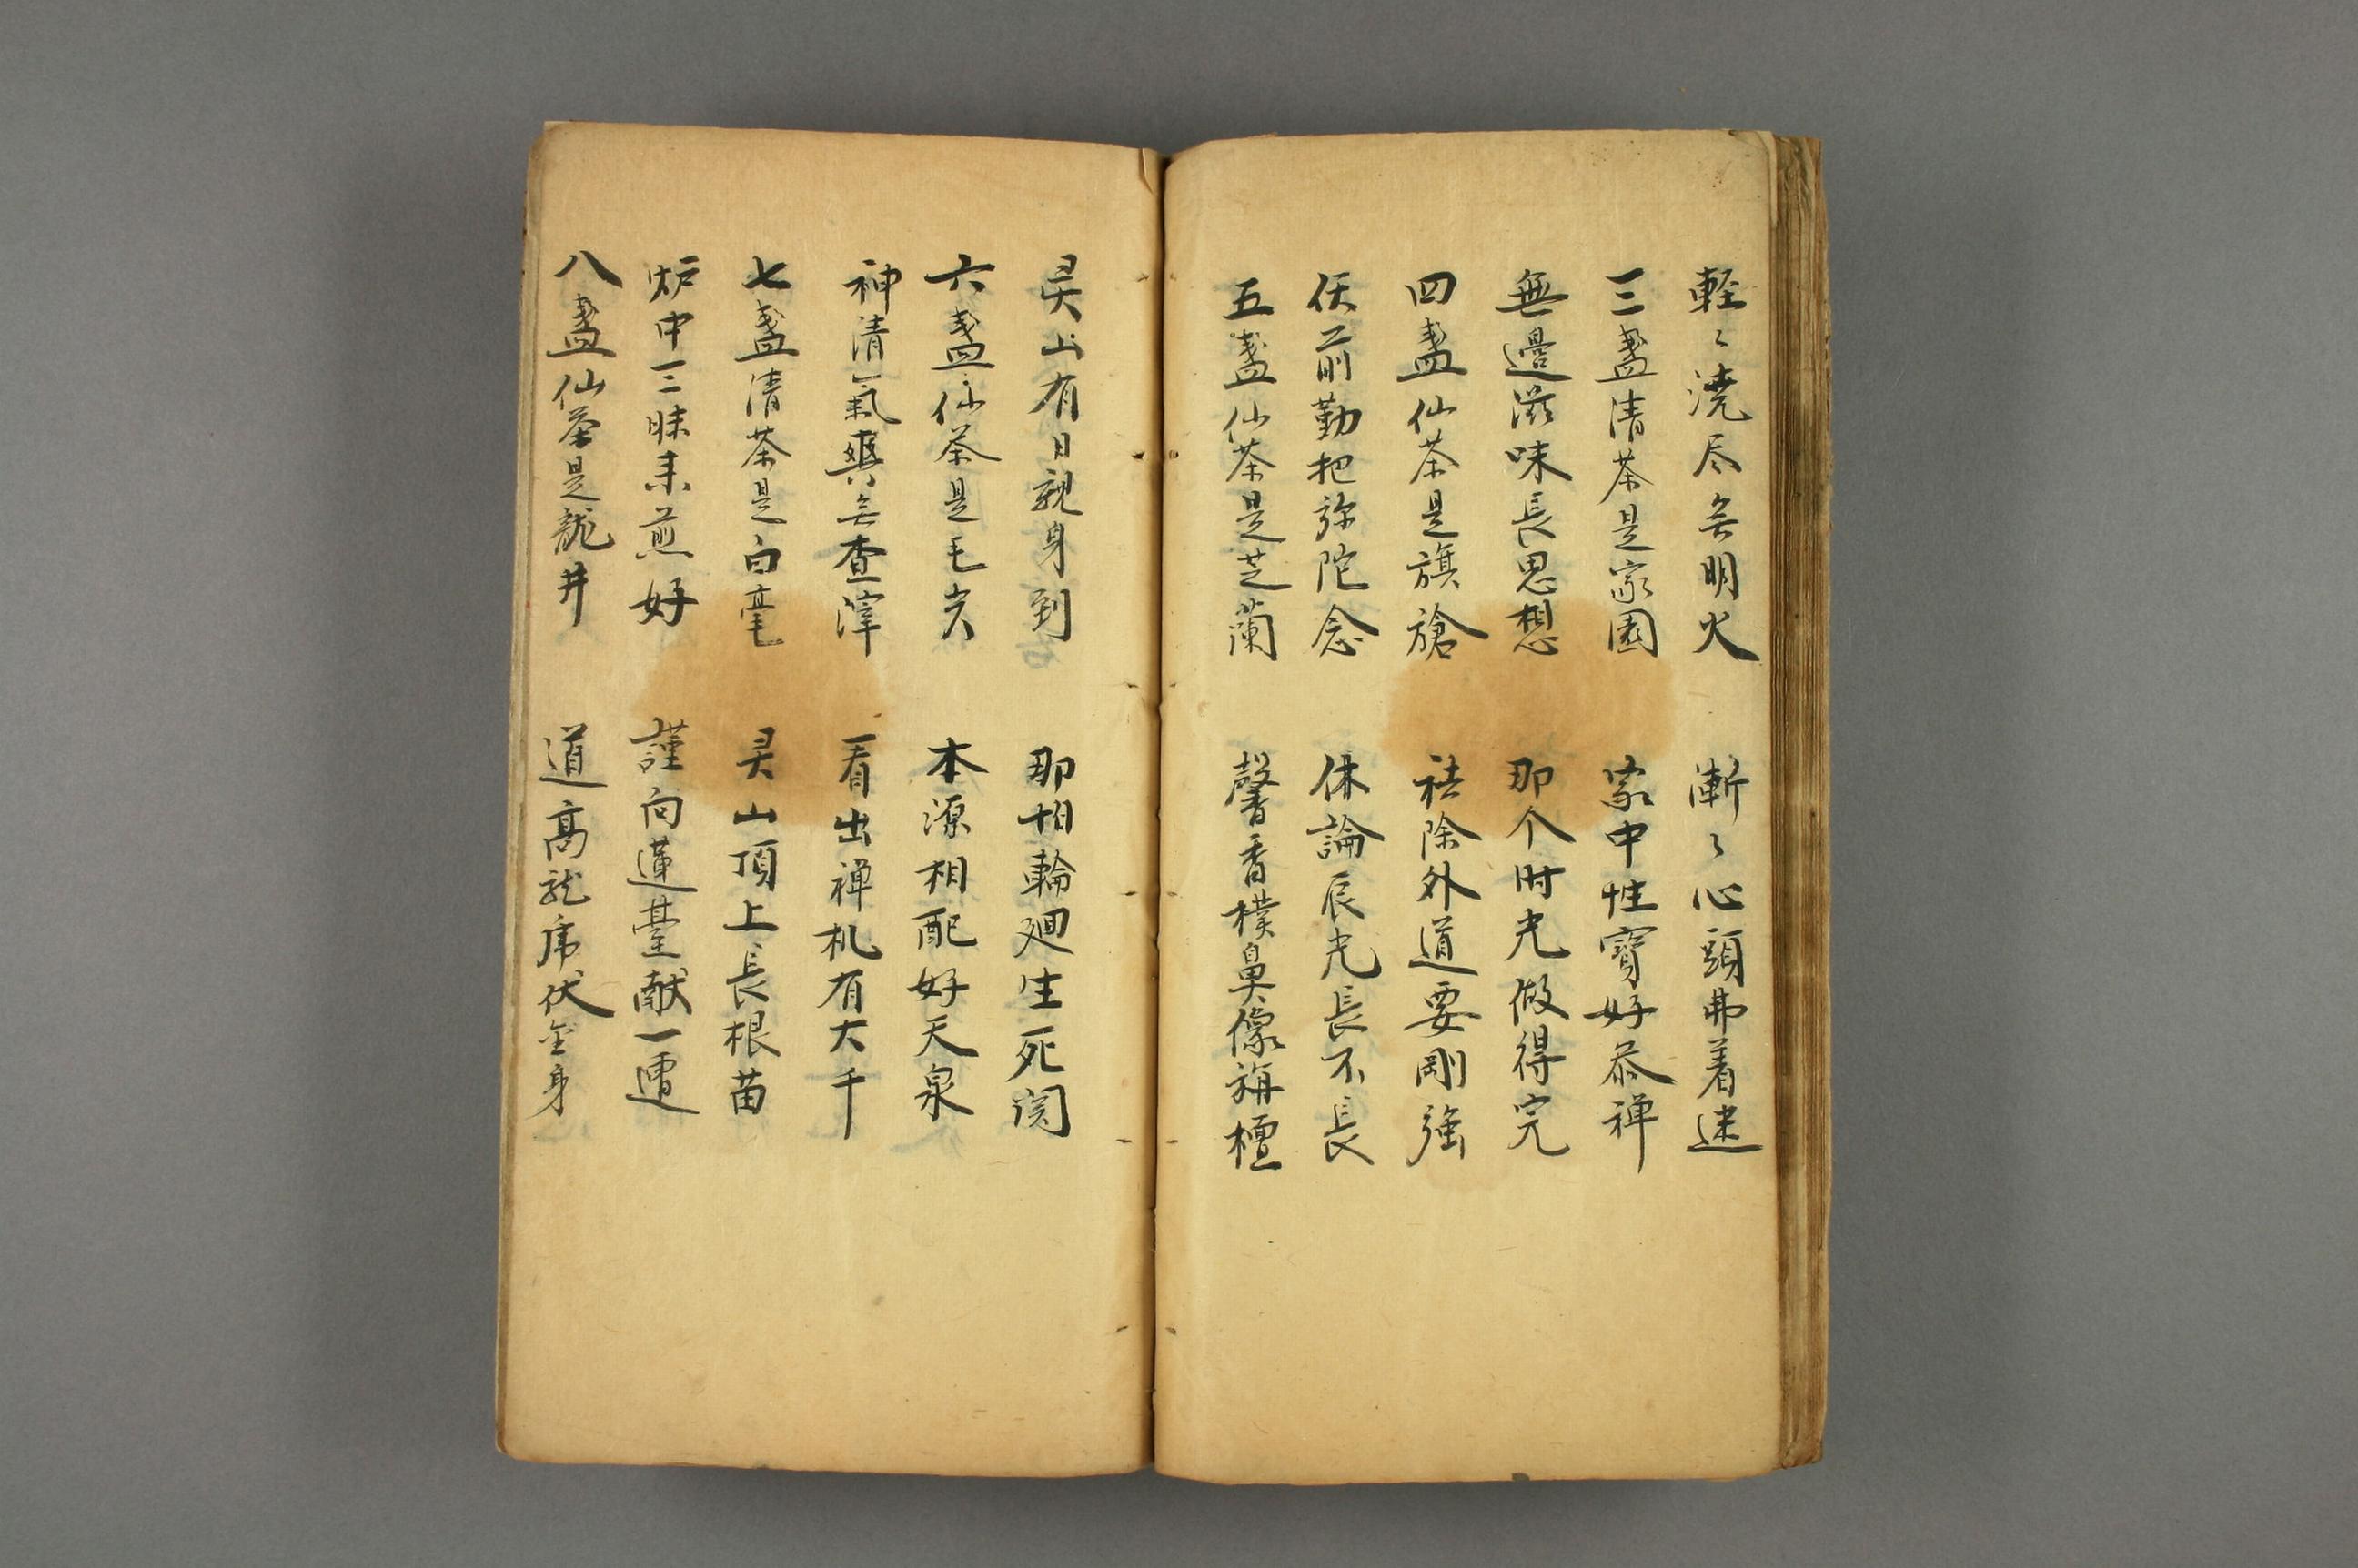 輕〻澆尽无明火 漸〻心頭弗着迷
三盞清茶是家園 家中性寶好叅禅
無邊滋味長思想 那个时光做得完
四盞仙茶是旗槍 祛除外道要剛強
仸前勤把弥陀念 休論辰光長不長
五盞仙茶是芝蘭 馨香樸鼻像旃檀
灵山有日親身到 那怕輪廻生死関
六盞仙茶是毛尖 本源相配好天泉
神清氣爽无查滓 看出禅机有大千
七盞清茶是白毫 灵山頂上長根苗
炉中三昧来煎好 謹向蓮臺献一遭
八盞仙茶是龍井 道高龍虎伏金身